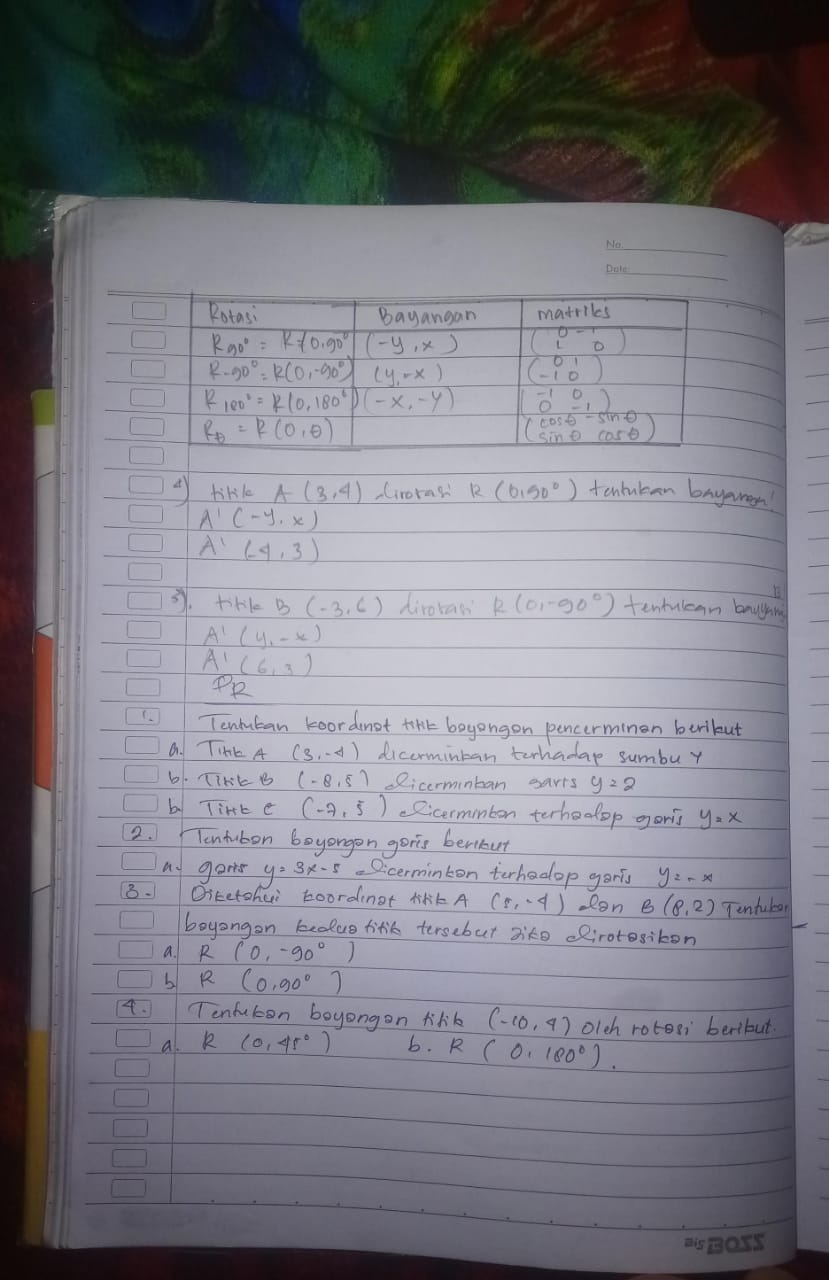 No.
Date:
Rotasi Bayangan matriks
R90° = R(0,90°) (-y, x) (0 -1
1 0)
R-90° = R(0,-90°) (y,-x) (0 1
-1 0)
R180° = R(0,180°) (-x,-y) (-1 0
0 -1)
Rθ = R(0,θ) (cosθ -sinθ
sinθ cosθ)
4) titik A (3,4) dirotasi R (0,90°) tentukan bayangan!
A' (-y, x)
A' (-4,3)
5). titik B (-3,6) dirotasi R (0,-90°) tentukan
A' (y,-x)
A' (6,3)
PR
1. Tentukan koordinat titik bayangan pencerminan berikut
a. Titik A (3,-4) dicerminkan terhadap sumbu Y
b. Titik B (-8,5) dicerminkan garis y=2
b Titik C (-7,5) dicerminkan terhadap garis y=x
2. Tentukan bayangan garis berikut
a. garis y=3x-5 dicerminkan terhadap garis y=-x
3. Diketahui koordinat titik A (5,-4) dan B (8,2) Tentukan
bayangan kedua titik tersebut jika dirotasikan
a. R (0,-90°)
b R (0,90°)
4. Tentukan bayangan titik (-10,4) oleh rotasi berikut.
a. R (0,45°) b. R (0,180°).
BIG BOSS